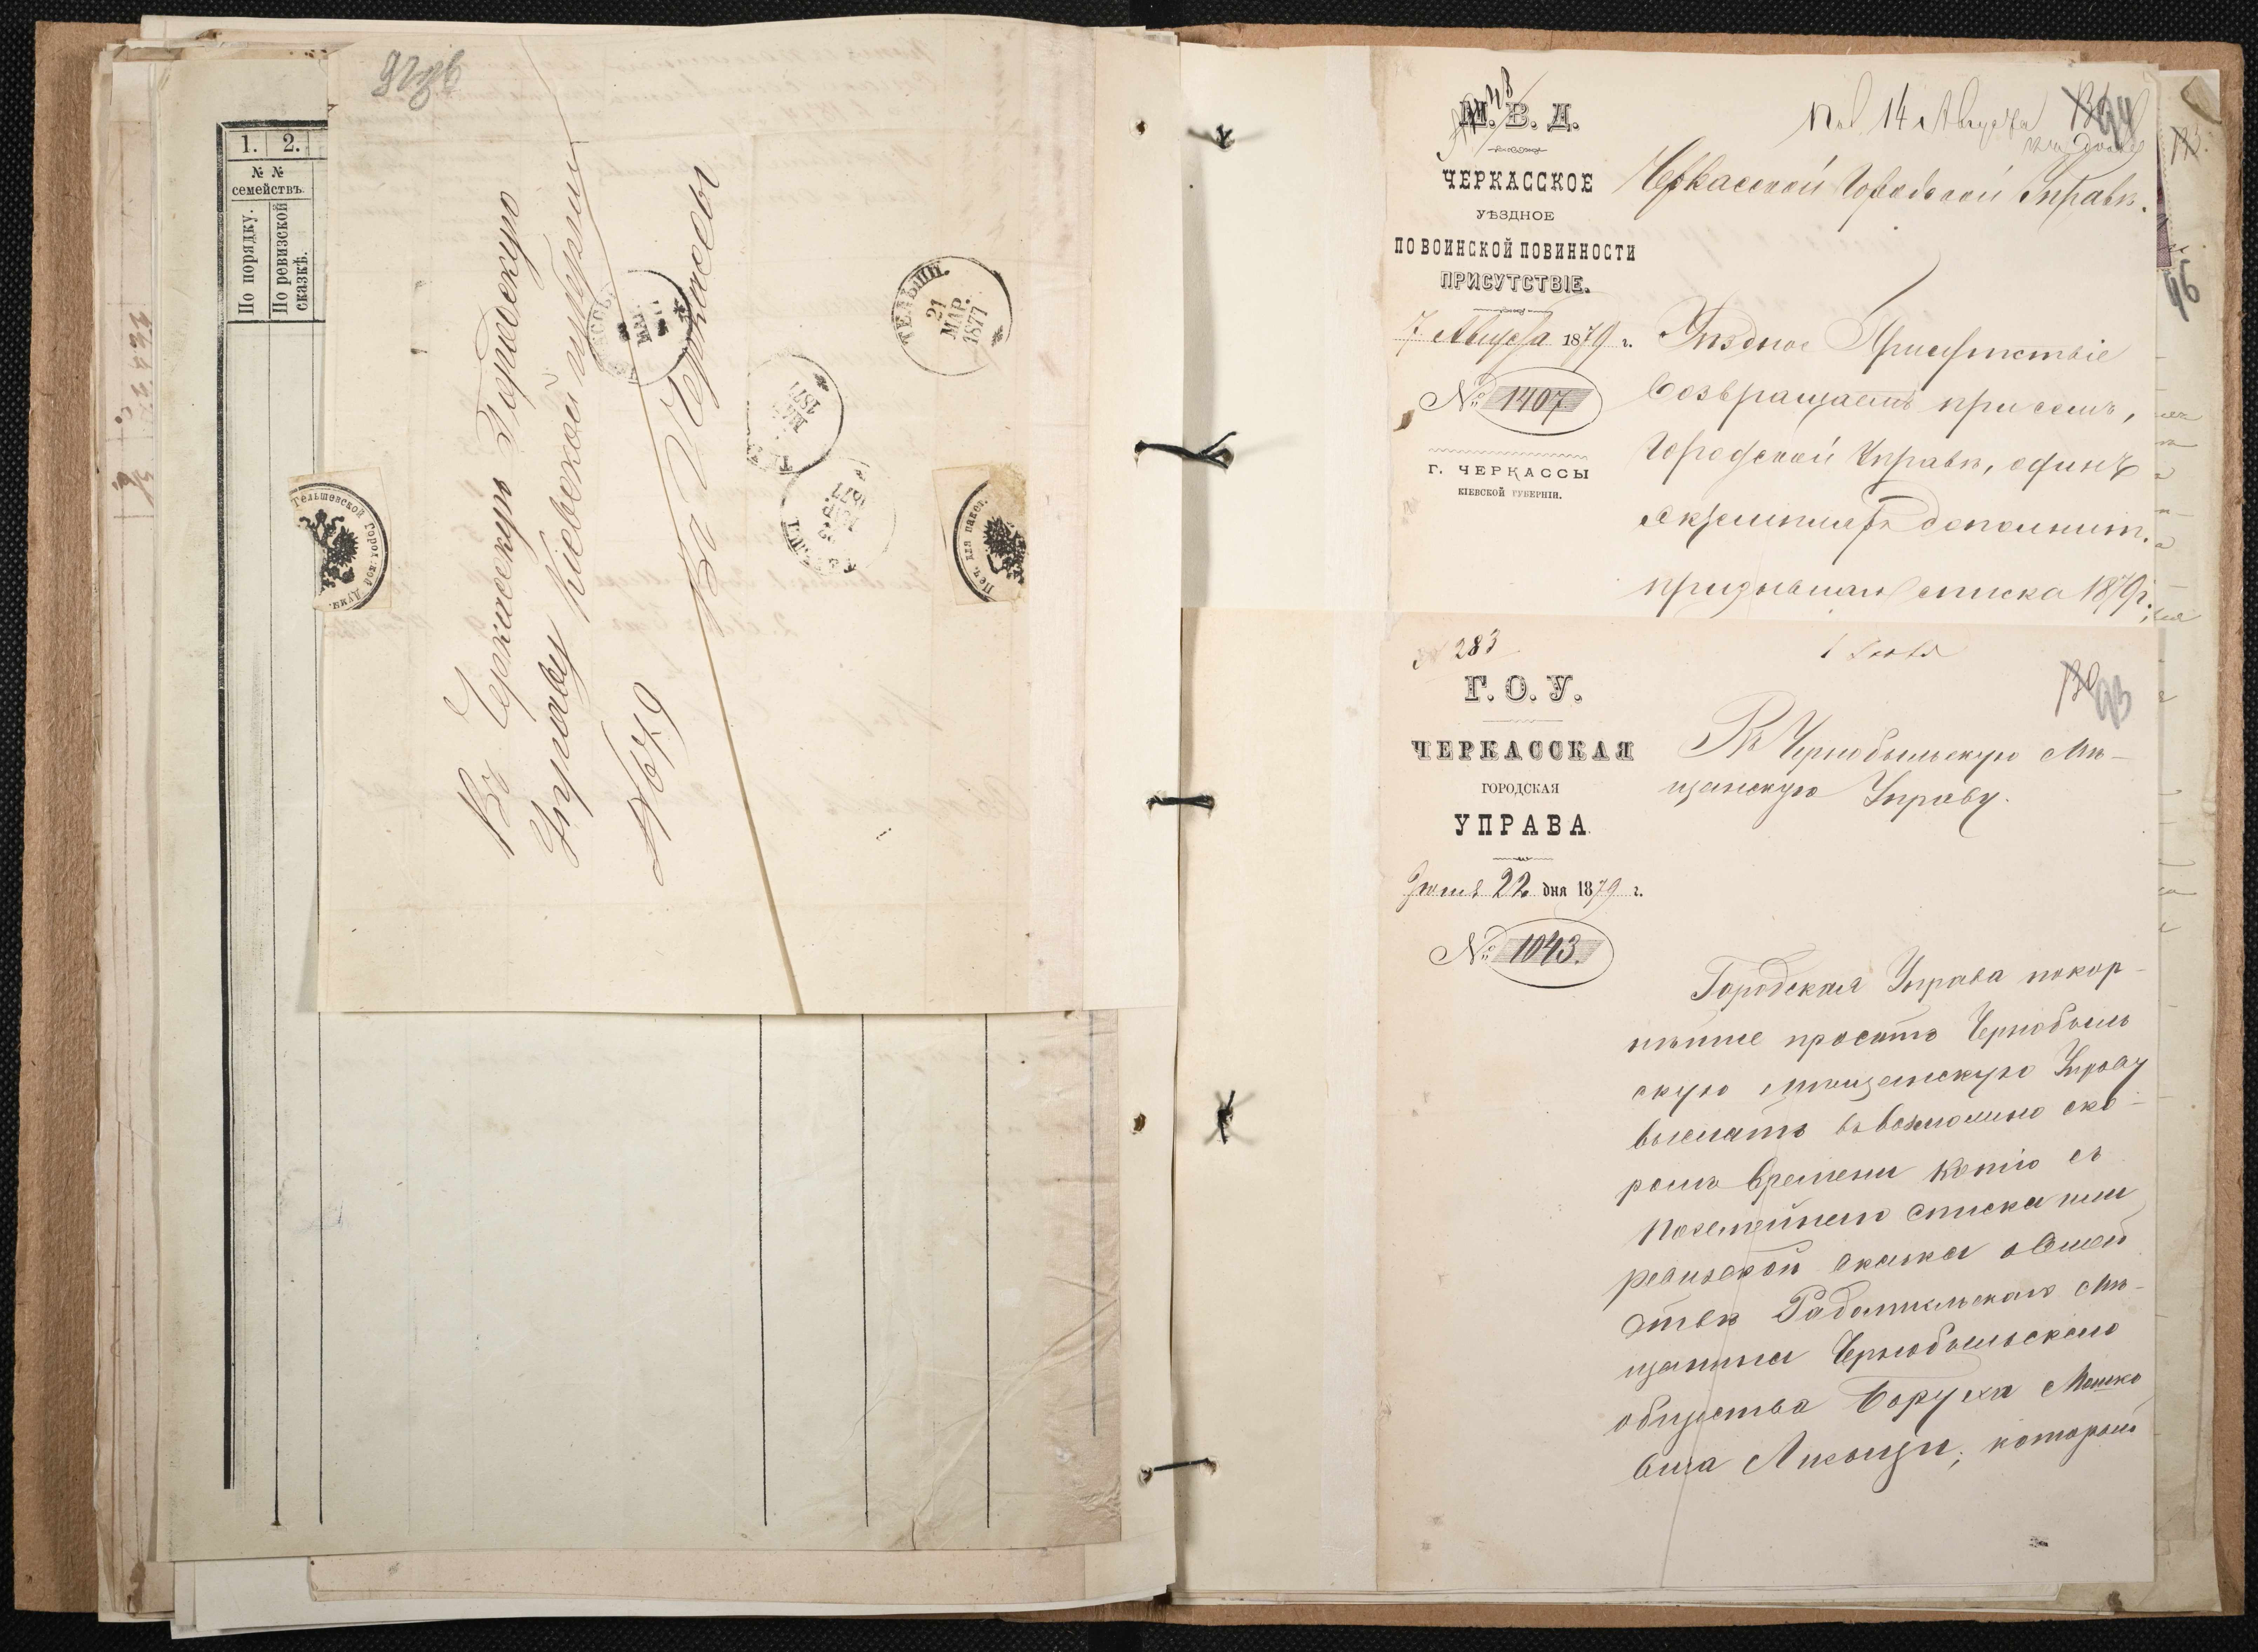 92об
1. 2.
№ №
семействъ.
По порядку.
По ревизской
сказкѣ.
Въ Черкасскую Городскую
Управу Кіевской губерніи
№ 679
Въ Черкассы
21
МАР.
1877
Тельшевской Город
Думы.
Печ. для пакет.
М. В. Д.
ЧЕРКАССКОЕ
УѢЗДНОЕ
ПО ВОИНСКОЙ ПОВИННОСТИ
ПРИСУТСТВІЕ.
7 Августа 1879 г.
№ 1407
Г. ЧЕРКАССЫ
КІЕВСКОЙ ГУБЕРНІИ.
Пол 14 Августа
94
Черкасской Городской Управѣ.
Уѣздное Присутствіе
возвращаетъ при семъ,
Городской Управѣ, одинъ
экземпляръ дополнит.
призывнаго списка 1879 г.
46
№ 283
Г. О. У.
ЧЕРКАССКАЯ
ГОРОДСКАЯ
УПРАВА
Іюня 22 дня 1879 г.
№ 1043.
93
Въ Чернобыльскую Мѣ-
щанскую Управу.
Городская Управа покор-
нѣйше проситъ Чернобыль
скую мѣщанскую Управу
выслать въ возможно ско-
ромъ времени копію съ
посемейнаго списка или
ревизской сказки о семей
ствѣ Радомысльскаго мѣ-
щанина Чернобыльскаго
общества Боруха Мошко
вича который